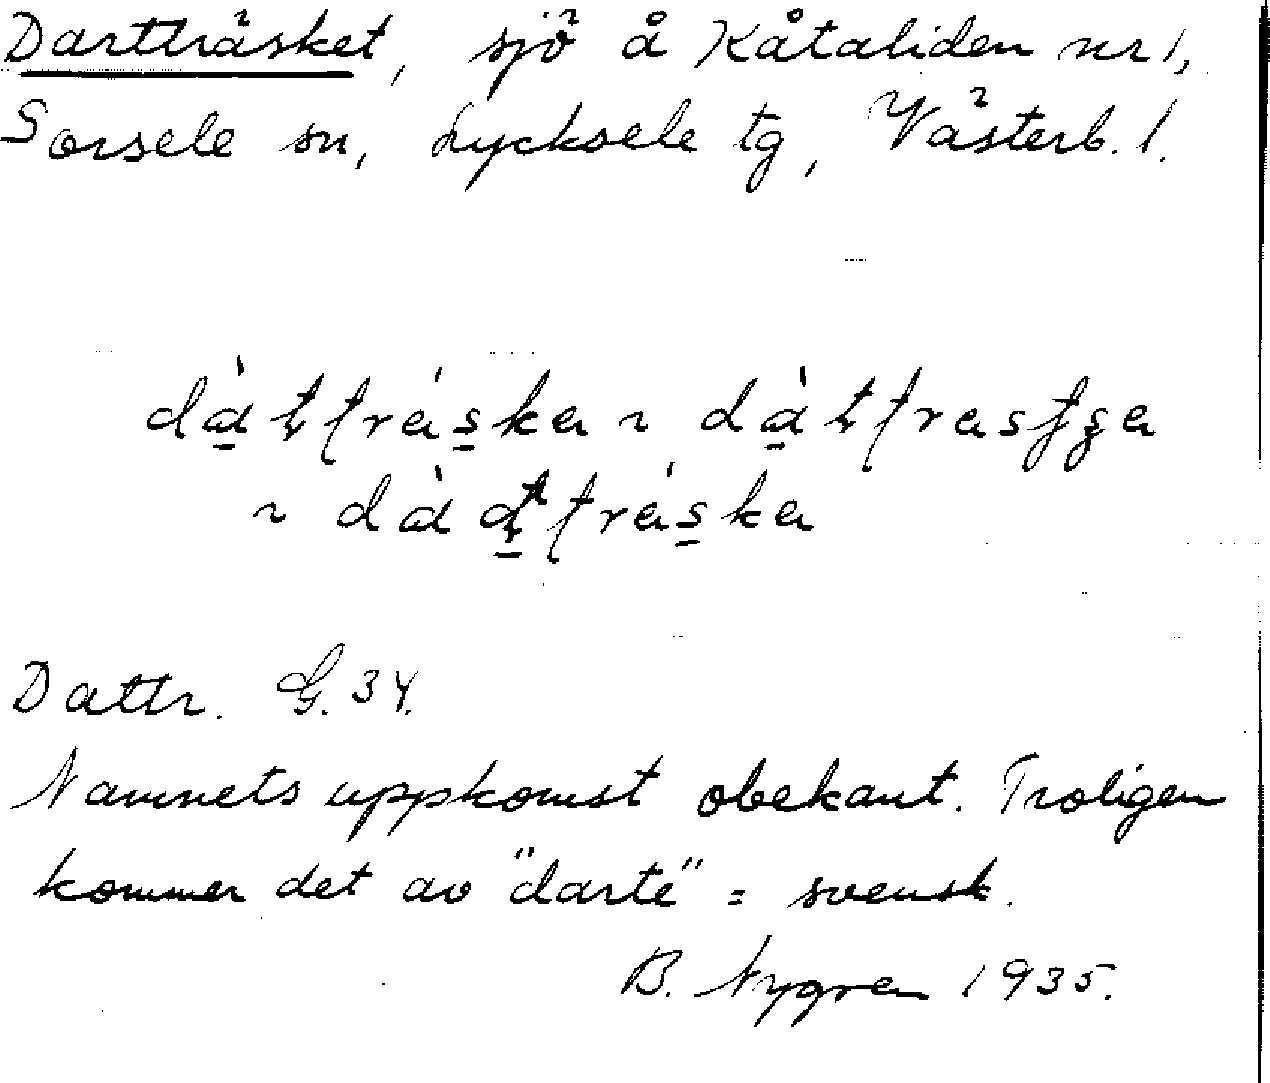 Dartträsket, sjö å Kåtaliden nr 1,
Sorsele sn, Lycksele tg, Västerb. l.
Dattr. G. 34.
Namnets uppkomst obekant. Troligen
kommer det av "darte" = svensk.
B. Nygren 1935.